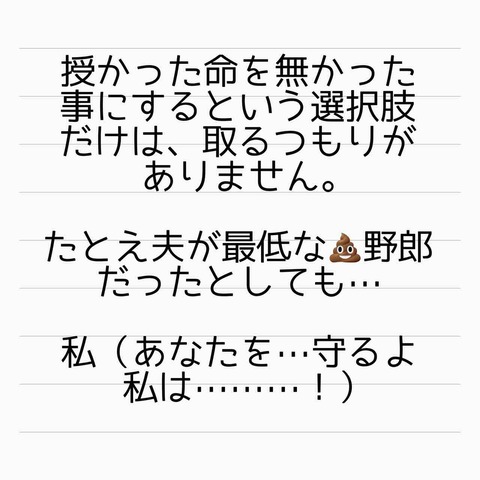 授かった命を無かった
事にするという選択肢
だけは、取るつもりが
ありません。
たとえ夫が最低な💩野郎
だったとしても…
私（あなたを…守るよ
私は………！）